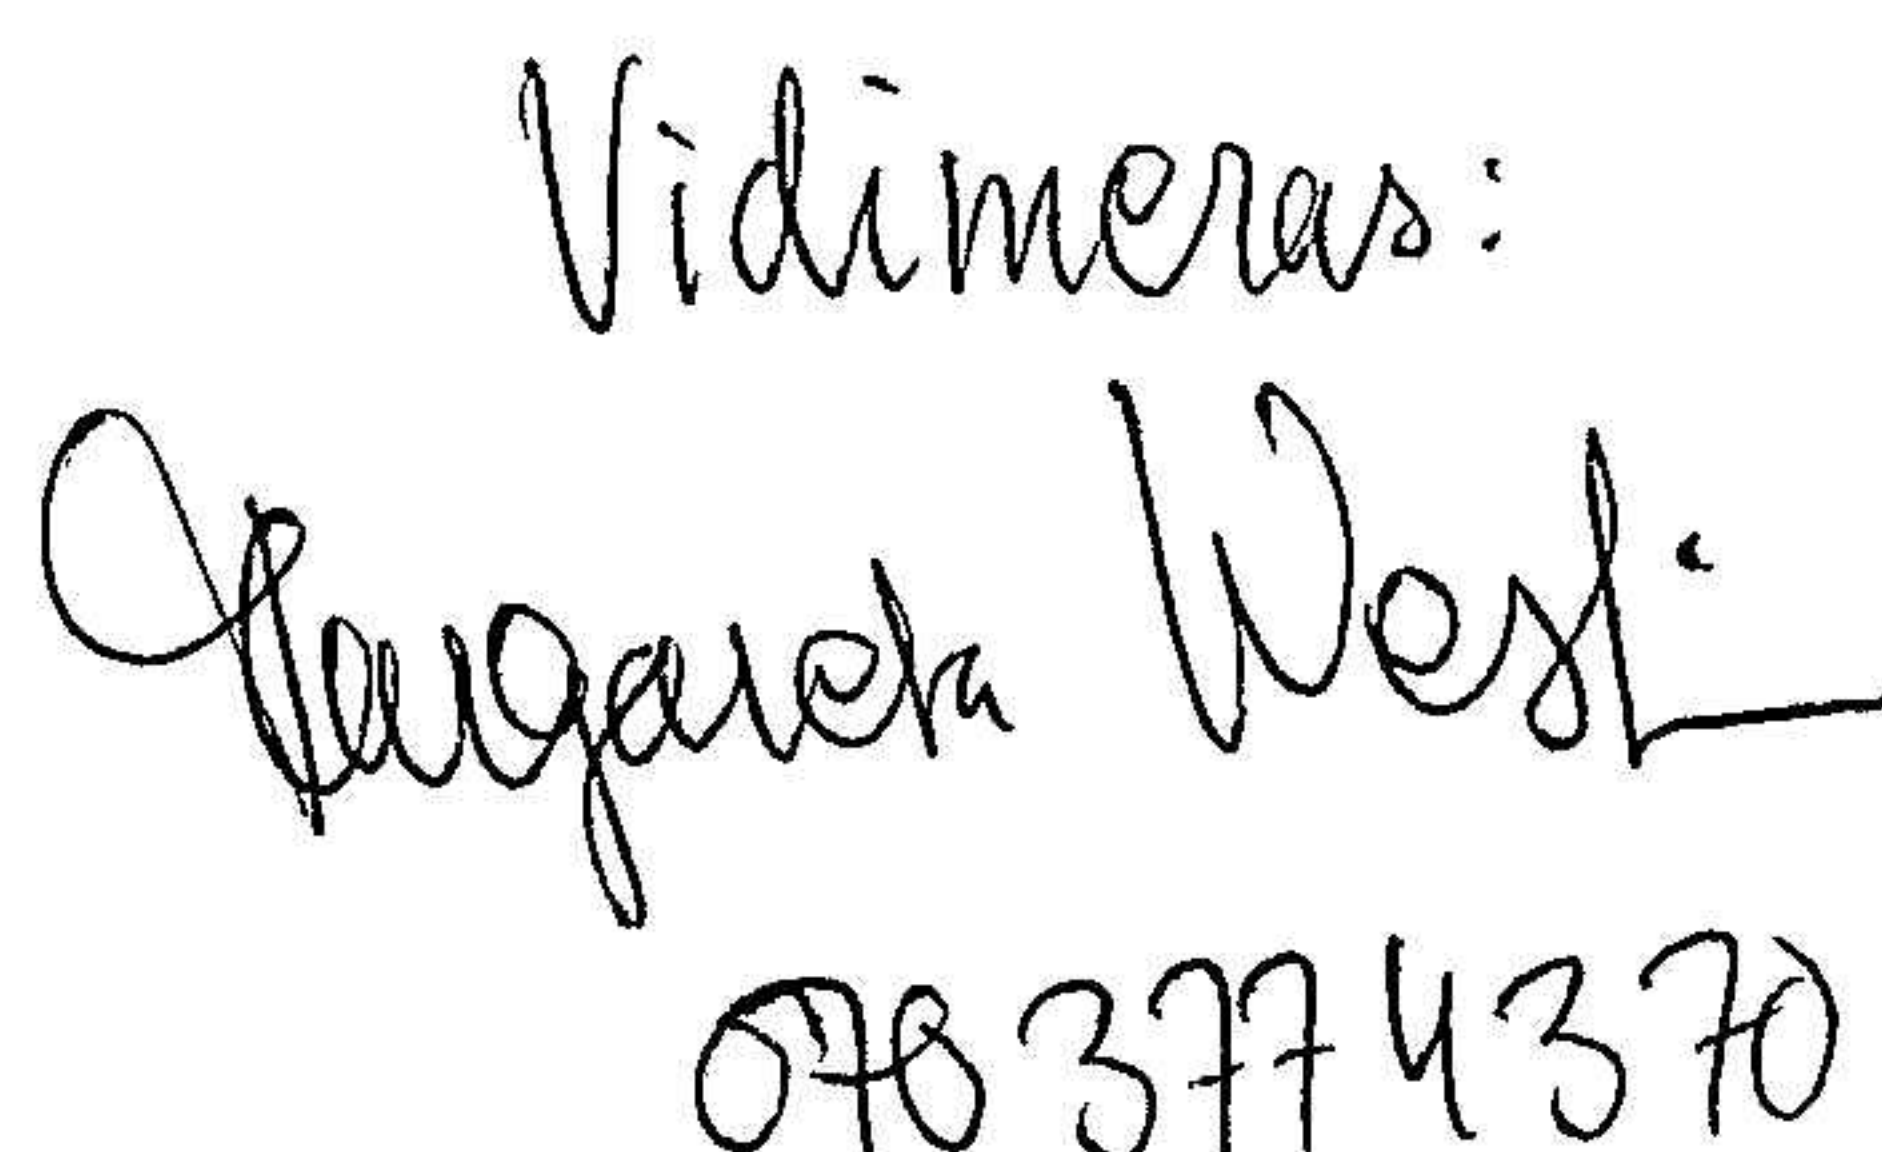 Vidimeras:
Margareta West
070 377 4370